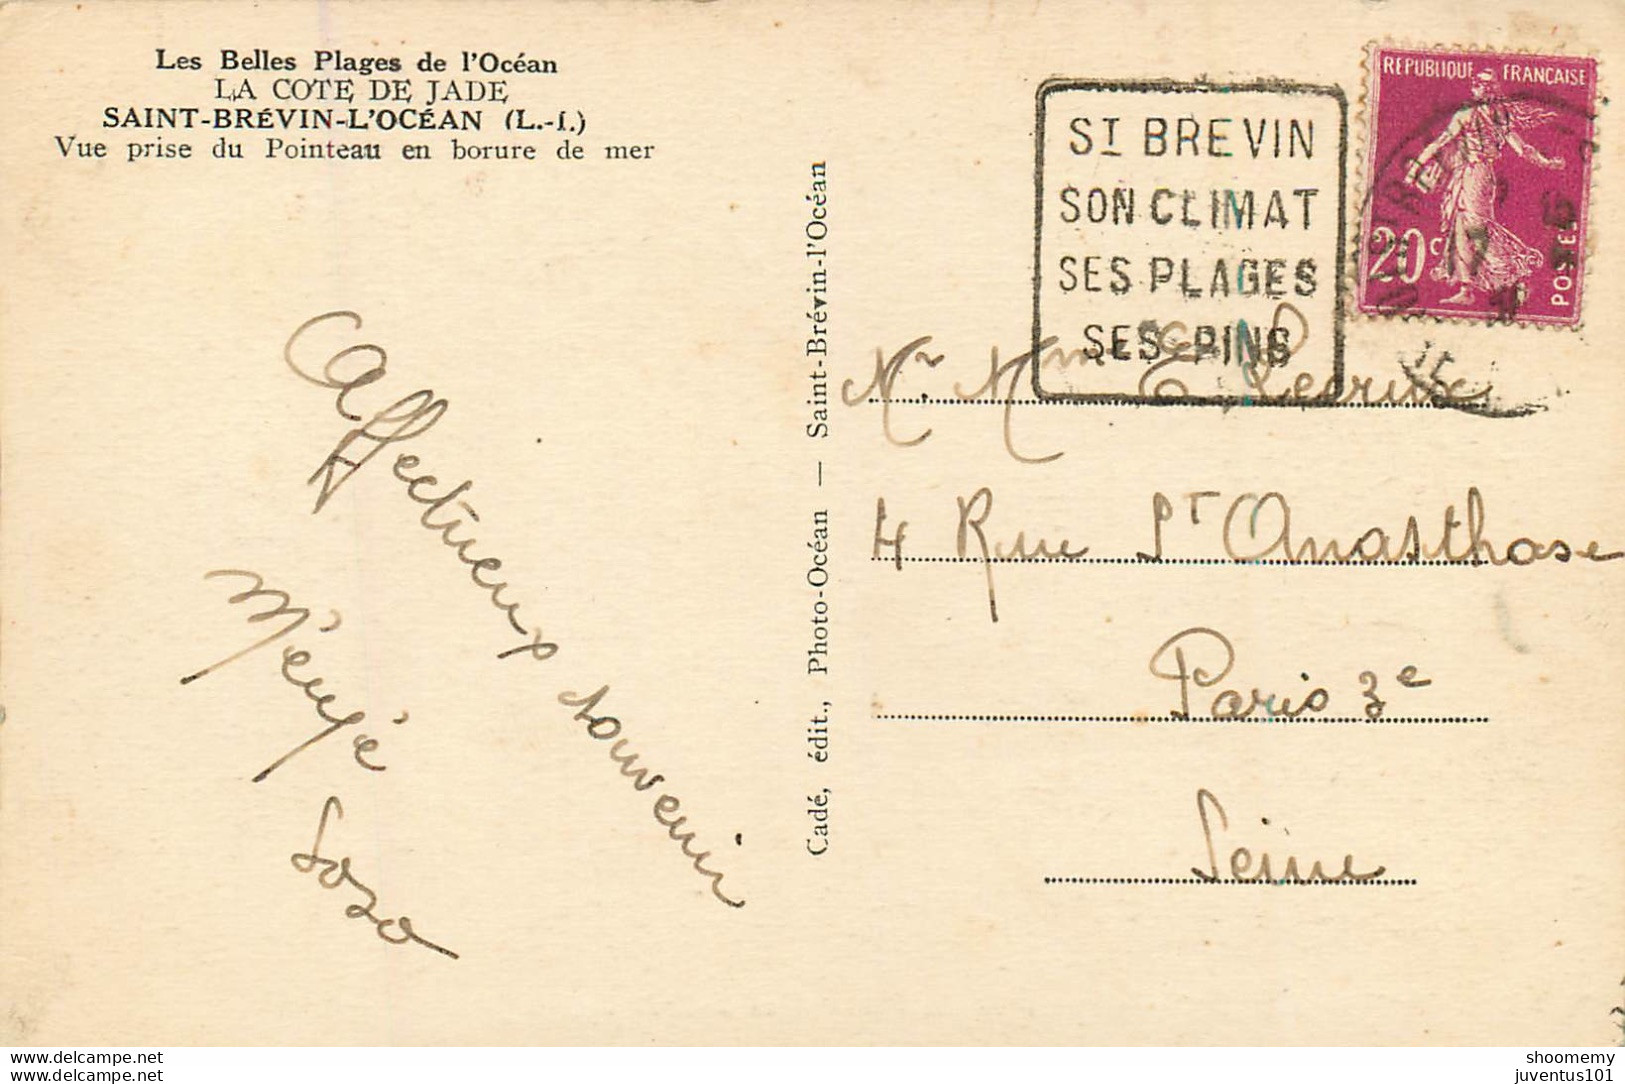 Les Belles Plages de l'Océan
LA COTE DE JADE
SAINT-BRÉVIN-L'OCÉAN (L.-I.)
Vue prise du Pointeau en borure de mer
Affectueux souvenir
Mémé
Soso
Cadé, édit., Photo-Océan — Saint-Brévin-l'Océan
ST BREVIN
SON CLIMAT
SES PLAGES
SES PINS
REPUBLIQUE FRANÇAISE
20c
POSTES
17
Mr Mme Ledrux
4 Rue St Anasthase
Paris 3e
Seine
juventus101
shoomemy
juventus101